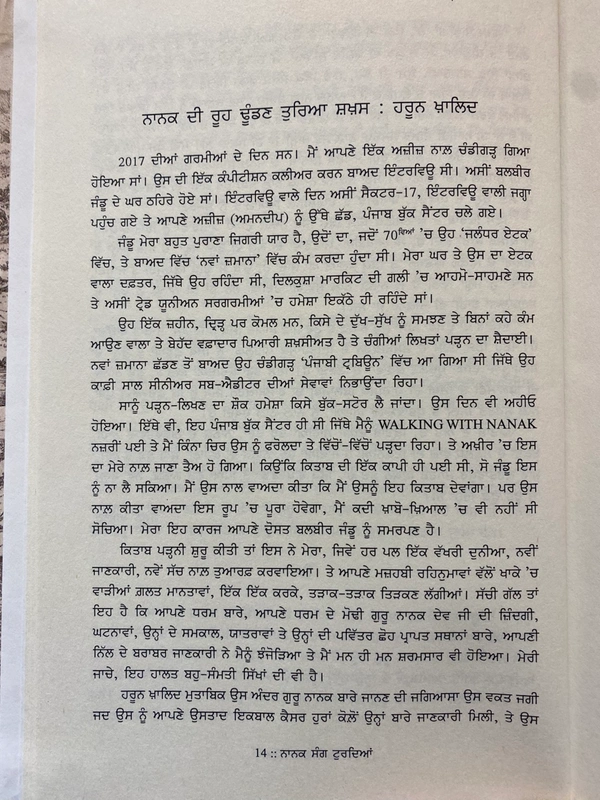 ਨਾਨਕ ਦੀ ਰੂਹ ਢੂੰਡਣ ਤੁਰਿਆ ਸ਼ਖ਼ਸ : ਹਰੂਨ ਖ਼ਾਲਿਦ
2017 ਦੀਆਂ ਗਰਮੀਆਂ ਦੇ ਦਿਨ ਸਨ। ਮੈਂ ਆਪਣੇ ਇੱਕ ਅਜ਼ੀਜ਼ ਨਾਲ਼ ਚੰਡੀਗੜ੍ਹ ਗਿਆ
ਹੋਇਆ ਸਾਂ। ਉਸ ਦੀ ਇੱਕ ਕੰਪੀਟੀਸ਼ਨ ਕਲੀਅਰ ਕਰਨ ਬਾਅਦ ਇੰਟਰਵਿਊ ਸੀ। ਅਸੀਂ ਬਲਬੀਰ
ਜੰਡੂ ਦੇ ਘਰ ਠਹਿਰੇ ਹੋਏ ਸਾਂ। ਇੰਟਰਵਿਊ ਵਾਲੇ ਦਿਨ ਅਸੀਂ ਸੈਕਟਰ-17, ਇੰਟਰਵਿਊ ਵਾਲੀ ਜਗ੍ਹਾ
ਪਹੁੰਚ ਗਏ ਤੇ ਆਪਣੇ ਅਜ਼ੀਜ਼ (ਅਮਨਦੀਪ) ਨੂੰ ਉੱਥੇ ਛੱਡ, ਪੰਜਾਬ ਬੁੱਕ ਸੈਂਟਰ ਚਲੇ ਗਏ।
ਜੰਡੂ ਮੇਰਾ ਬਹੁਤ ਪੁਰਾਣਾ ਜਿਗਰੀ ਯਾਰ ਹੈ, ਉਦੋਂ ਦਾ, ਜਦੋਂ 70ਵਿਆਂ 'ਚ ਉਹ 'ਜਲੰਧਰ ਏਟਕ'
ਵਿੱਚ, ਤੇ ਬਾਅਦ ਵਿੱਚ 'ਨਵਾਂ ਜ਼ਮਾਨਾ' ਵਿੱਚ ਕੰਮ ਕਰਦਾ ਹੁੰਦਾ ਸੀ। ਮੇਰਾ ਘਰ ਤੇ ਉਸ ਦਾ ਏਟਕ
ਵਾਲਾ ਦਫ਼ਤਰ, ਜਿੱਥੇ ਉਹ ਰਹਿੰਦਾ ਸੀ, ਦਿਲਕੁਸ਼ਾ ਮਾਰਕਿਟ ਦੀ ਗਲੀ 'ਚ ਆਹਮੋ-ਸਾਹਮਣੇ ਸਨ
ਤੇ ਅਸੀਂ ਟ੍ਰੇਡ ਯੂਨੀਅਨ ਸਰਗਰਮੀਆਂ 'ਚ ਹਮੇਸ਼ਾ ਇਕੱਠੇ ਹੀ ਰਹਿੰਦੇ ਸਾਂ।
ਉਹ ਇੱਕ ਜ਼ਹੀਨ, ਦ੍ਰਿੜ੍ਹ ਪਰ ਕੋਮਲ ਮਨ, ਕਿਸੇ ਦੇ ਦੁੱਖ-ਸੁੱਖ ਨੂੰ ਸਮਝਣ ਤੇ ਬਿਨਾਂ ਕਹੇ ਕੰਮ
ਆਉਣ ਵਾਲਾ ਤੇ ਬੇਹੱਦ ਵਫ਼ਾਦਾਰ ਪਿਆਰੀ ਸ਼ਖ਼ਸੀਅਤ ਹੈ ਤੇ ਚੰਗੀਆਂ ਲਿਖਤਾਂ ਪੜ੍ਹਨ ਦਾ ਸ਼ੈਦਾਈ।
ਨਵਾਂ ਜ਼ਮਾਨਾ ਛੱਡਣ ਤੋਂ ਬਾਅਦ ਉਹ ਚੰਡੀਗੜ੍ਹ 'ਪੰਜਾਬੀ ਟ੍ਰਬਿਊਨ' ਵਿੱਚ ਆ ਗਿਆ ਸੀ ਜਿੱਥੇ ਉਹ
ਕਾਫ਼ੀ ਸਾਲ ਸੀਨੀਅਰ ਸਬ-ਐਡੀਟਰ ਦੀਆਂ ਸੇਵਾਵਾਂ ਨਿਭਾਉਂਦਾ ਰਿਹਾ।
ਸਾਨੂੰ ਪੜ੍ਹਨ-ਲਿਖਣ ਦਾ ਸ਼ੌਕ ਹਮੇਸ਼ਾ ਕਿਸੇ ਬੁੱਕ-ਸਟੋਰ ਲੈ ਜਾਂਦਾ। ਉਸ ਦਿਨ ਵੀ ਅਹੀਓ
ਹੋਇਆ। ਇੱਥੇ ਵੀ, ਇਹ ਪੰਜਾਬ ਬੁੱਕ ਸੈਂਟਰ ਹੀ ਸੀ ਜਿੱਥੇ ਮੈਨੂੰ WALKING WITH NANAK
ਨਜ਼ਰੀਂ ਪਈ ਤੇ ਮੈਂ ਕਿੰਨਾ ਚਿਰ ਉਸ ਨੂੰ ਫਰੋਲਦਾ ਤੇ ਵਿੱਚੋਂ-ਵਿੱਚੋਂ ਪੜ੍ਹਦਾ ਰਿਹਾ। ਤੇ ਅਖ਼ੀਰ 'ਚ ਇਸ
ਦਾ ਮੇਰੇ ਨਾਲ਼ ਜਾਣਾ ਤੈਅ ਹੋ ਗਿਆ। ਕਿਉਂਕਿ ਕਿਤਾਬ ਦੀ ਇੱਕ ਕਾਪੀ ਹੀ ਪਈ ਸੀ, ਸੋ ਜੰਡੂ ਇਸ
ਨੂੰ ਨਾ ਲੈ ਸਕਿਆ। ਮੈਂ ਉਸ ਨਾਲ ਵਾਅਦਾ ਕੀਤਾ ਕਿ ਮੈਂ ਉਸਨੂੰ ਇਹ ਕਿਤਾਬ ਦੇਵਾਂਗਾ। ਪਰ ਉਸ
ਨਾਲ਼ ਕੀਤਾ ਵਾਅਦਾ ਇਸ ਰੂਪ 'ਚ ਪੂਰਾ ਹੋਵੇਗਾ, ਮੈਂ ਕਦੀ ਖ਼ਾਬੋ-ਖ਼ਿਆਲ 'ਚ ਵੀ ਨਹੀਂ ਸੀ
ਸੋਚਿਆ। ਮੇਰਾ ਇਹ ਕਾਰਜ ਆਪਣੇ ਦੋਸਤ ਬਲਬੀਰ ਜੰਡੂ ਨੂੰ ਸਮਰਪਣ ਹੈ।
ਕਿਤਾਬ ਪੜ੍ਹਨੀ ਸ਼ੁਰੂ ਕੀਤੀ ਤਾਂ ਇਸ ਨੇ ਮੇਰਾ, ਜਿਵੇਂ ਹਰ ਪਲ ਇੱਕ ਵੱਖਰੀ ਦੁਨੀਆ, ਨਵੀਂ
ਜਾਣਕਾਰੀ, ਨਵੇਂ ਸੱਚ ਨਾਲ਼ ਤੁਆਰਫ਼ ਕਰਵਾਇਆ। ਤੇ ਆਪਣੇ ਮਜ਼ਹਬੀ ਰਹਿਨੁਮਾਵਾਂ ਵੱਲੋਂ ਖਾਕੇ 'ਚ
ਵਾੜੀਆਂ ਗ਼ਲਤ ਮਾਨਤਾਵਾਂ, ਇੱਕ ਇੱਕ ਕਰਕੇ, ਤੜਾਕ-ਤੜਾਕ ਤਿੜਕਣ ਲੱਗੀਆਂ। ਸੱਚੀ ਗੱਲ ਤਾਂ
ਇਹ ਹੈ ਕਿ ਆਪਣੇ ਧਰਮ ਬਾਰੇ, ਆਪਣੇ ਧਰਮ ਦੇ ਮੋਢੀ ਗੁਰੂ ਨਾਨਕ ਦੇਵ ਜੀ ਦੀ ਜ਼ਿੰਦਗੀ,
ਘਟਨਾਵਾਂ, ਉਨ੍ਹਾਂ ਦੇ ਸਮਕਾਲ, ਯਾਤਰਾਵਾਂ ਤੇ ਉਨ੍ਹਾਂ ਦੀ ਪਵਿੱਤਰ ਛੋਹ ਪ੍ਰਾਪਤ ਸਥਾਨਾਂ ਬਾਰੇ, ਆਪਣੀ
ਨਿੱਲ ਦੇ ਬਰਾਬਰ ਜਾਣਕਾਰੀ ਨੇ ਮੈਨੂੰ ਝੰਜੋੜਿਆ ਤੇ ਮੈਂ ਮਨ ਹੀ ਮਨ ਸ਼ਰਮਸਾਰ ਵੀ ਹੋਇਆ। ਮੇਰੀ
ਜਾਚੇ, ਇਹ ਹਾਲਤ ਬਹੁ-ਸੰਮਤੀ ਸਿੱਖਾਂ ਦੀ ਵੀ ਹੈ।
ਹਰੂਨ ਖ਼ਾਲਿਦ ਮੁਤਾਬਿਕ ਉਸ ਅੰਦਰ ਗੁਰੂ ਨਾਨਕ ਬਾਰੇ ਜਾਨਣ ਦੀ ਜਗਿਆਸਾ ਉਸ ਵਕਤ ਜਗੀ
ਜਦ ਉਸ ਨੂੰ ਆਪਣੇ ਉਸਤਾਦ ਇਕਬਾਲ ਕੈਸਰ ਹੁਰਾਂ ਕੋਲ਼ੋਂ ਉਨ੍ਹਾਂ ਬਾਰੇ ਜਾਣਕਾਰੀ ਮਿਲੀ, ਤੇ ਉਸ
14 :: ਨਾਨਕ ਸੰਗ ਟੁਰਦਿਆਂ